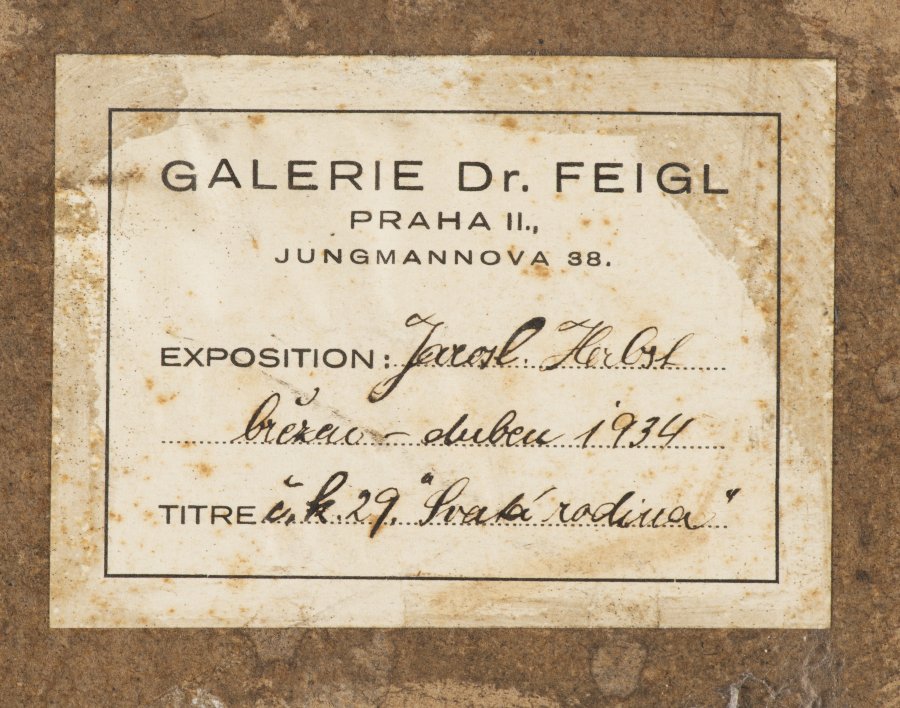 GALERIE Dr. FEIGL
PRAHA II.,
JUNGMANNOVA 38.
EXPOSITION: Jarosl. Herbst
březen – duben 1934
TITRE č. k. 29. "Svatá rodina"